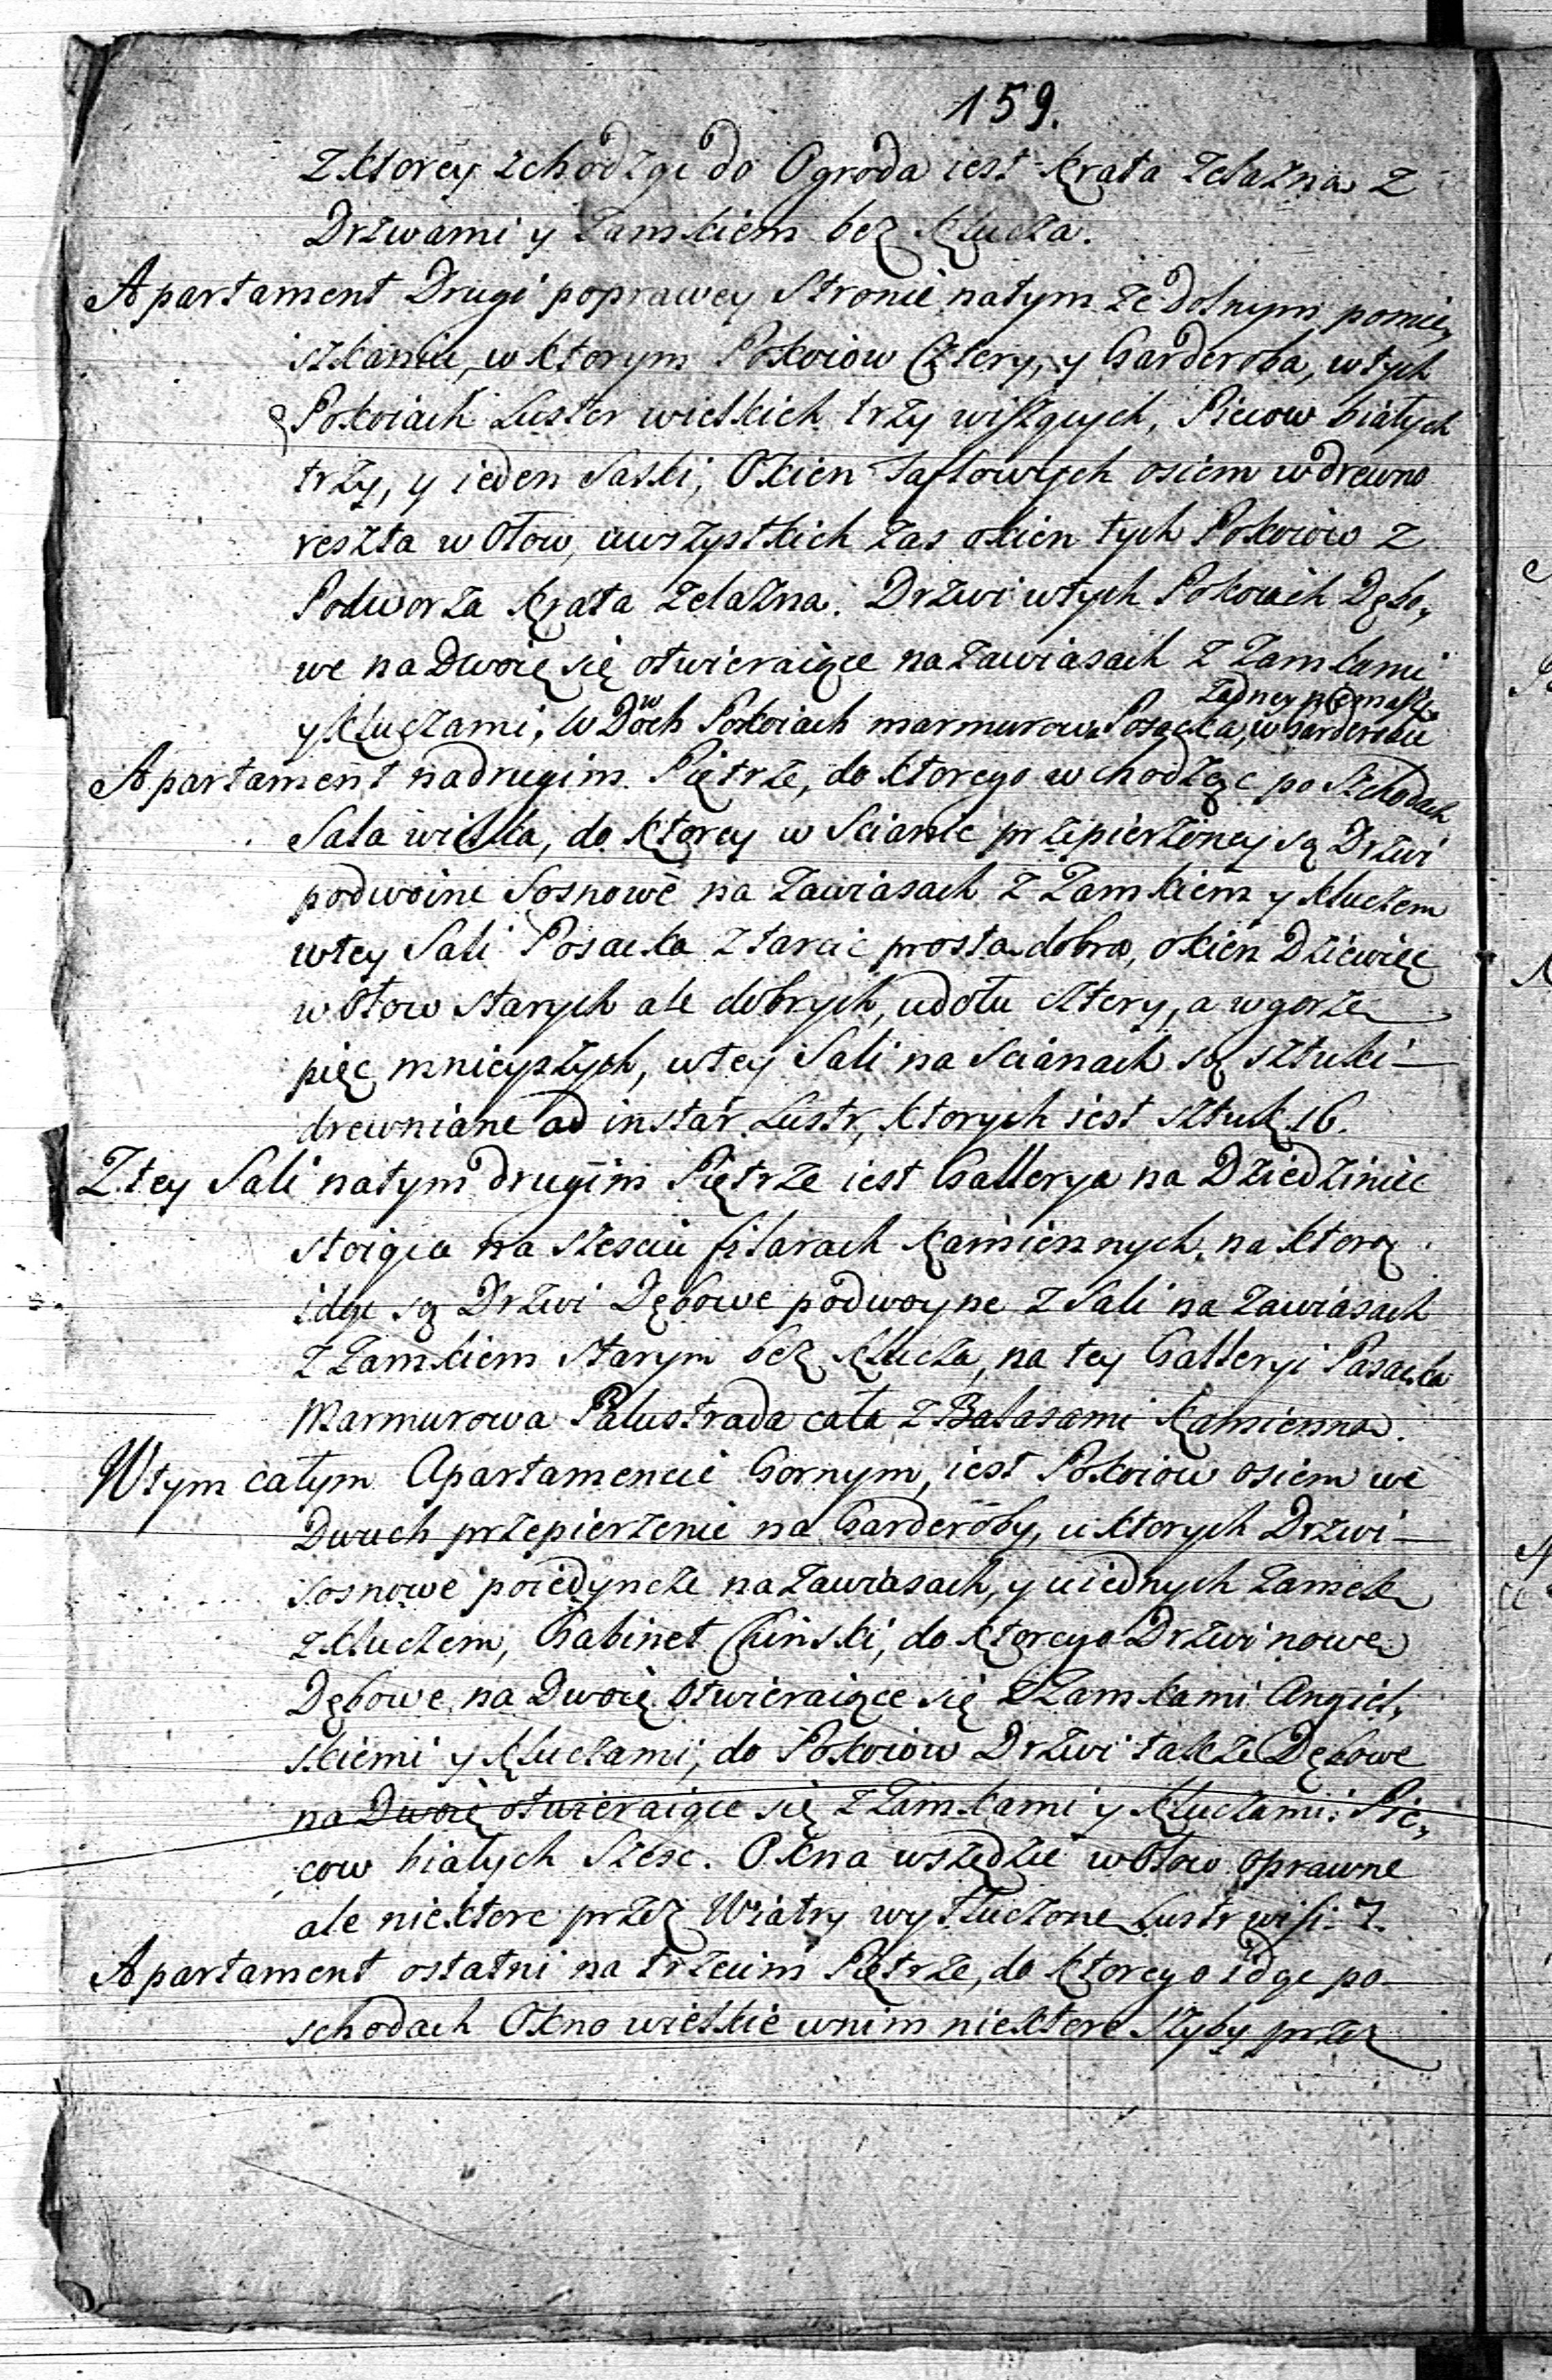 159.
z ktorey zchodząc do Ogroda iest Krata żelazna z
Drzwami y Zamkiem bez Klucza.
Apartament Drugi poprawey Stronie natym ze Dolnym pomie„
szkaniu, w ktorym Pokoiow Cztery, y Garderoba, wtych
Pokoiach Luster wielkich trzy wiszących, Piecow białych
trzy, y ieden Saski, Okien Taflowych osiem w drewno
reszta w Ołow, uwszystkich zas okien tych Pokoiow z
Podworza Krata żelazna. Drzwi wtych Pokoiach Dębo„
we na Dwoie się otwieraiące na Zawiasach z Zamkami
y Kluczami, W Dwoch Pokoiach marmurowa Posacka, w Garderobie
żadney niemasz.
Apartament nadrugim Piętrze, do ktorego wchodząc po Szchodach
Sala wielka, do ktorey w Scianie przepierzoney są Drzwi
podwoine Sosnowe na Zawiasach z Zamkiem y Kluczem
wtey Sali Posacka z tarcic prosta dobra, okien Dziewięc
w Ołow starych ale dobrych, udołu cztery, a w gorze
pięc mnieyszych, wtey Sali na Scianach są sztuki
drewniane ad instar Lustr, ktorych iest sztuk 16.
Z tey Sali natym drugim Piętrze iest Gallerya na Dziedziniec
stoiąca na sześciu filarach kamiennych, na ktorą
idąc są Drzwi Dębowe podwoyne z Sali na Zawiasach
z Zamkiem starym bez Klucza, na tey Galleryi Pasacka
Marmurowa Palustrada cała z Balasami Kamienna.
W tym całym Apartamencie Gornym, iest Pokoiow osiem we
Dwuch przepierzenie na Garderoby, u ktorych Drzwi
sosnowe poiedyncze na Zawiasach, y uiednych Zamek
z Kluczem, Gabinet Chinski, do ktorego Drzwi nowe
Dębowe na Dwoie otwieraiące się z Zamkami Angiel„
skiemi y Kluczami, do Pokoiow Drzwi także Dębowe
na Dwoie otwieraiące się z Zamkami y Kluczami: Pie„
cow białych Szesc. Okna wszędzie w Ołow oprawne
ale niektore przez Wiatry wytłuczone Lustr wisi 7.
Apartament ostatni na trzecim Piętrze, do ktorego idąc po
schodach Okno wielkie wnim niektore szyby przez